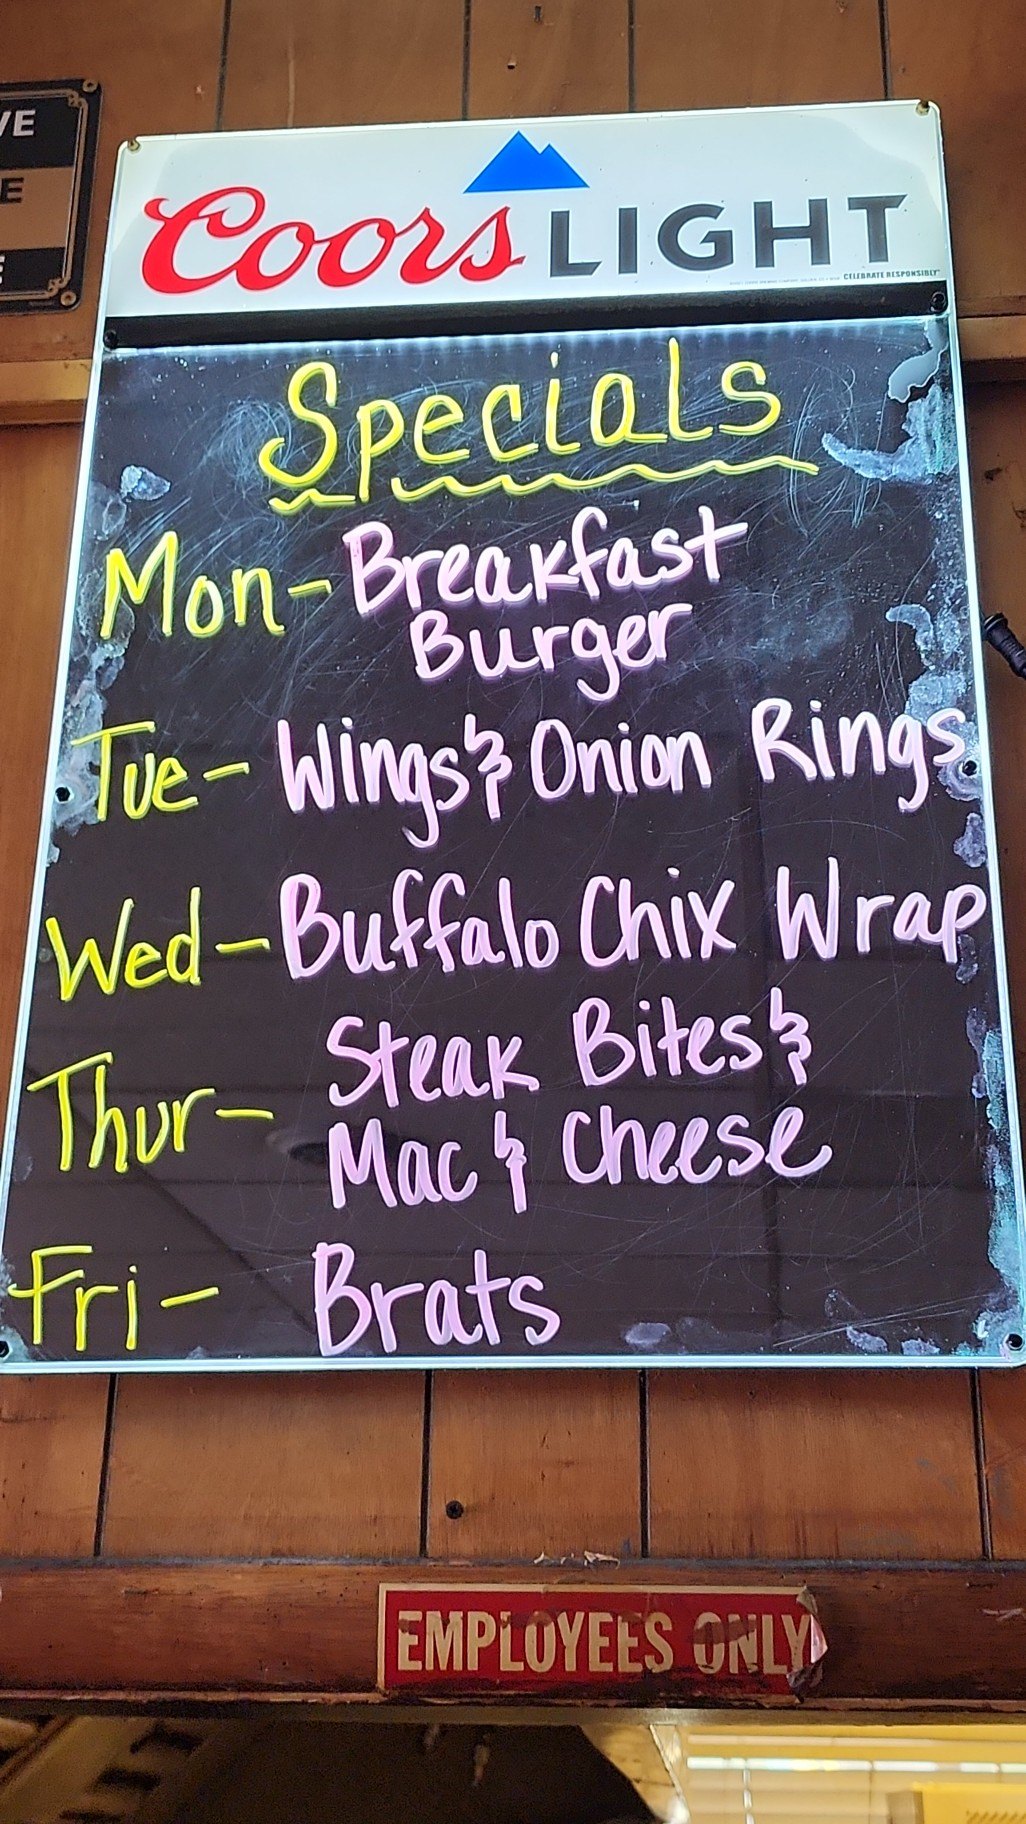 VE
E
E
Coors LIGHT
CELEBRATE RESPONSIBLY®
Specials
Mon - Breakfast
Burger
Tue - Wings & Onion Rings
Wed - Buffalo Chix Wrap
Thur - Steak Bites &
Mac & Cheese
Fri - Brats
EMPLOYEES ONLY